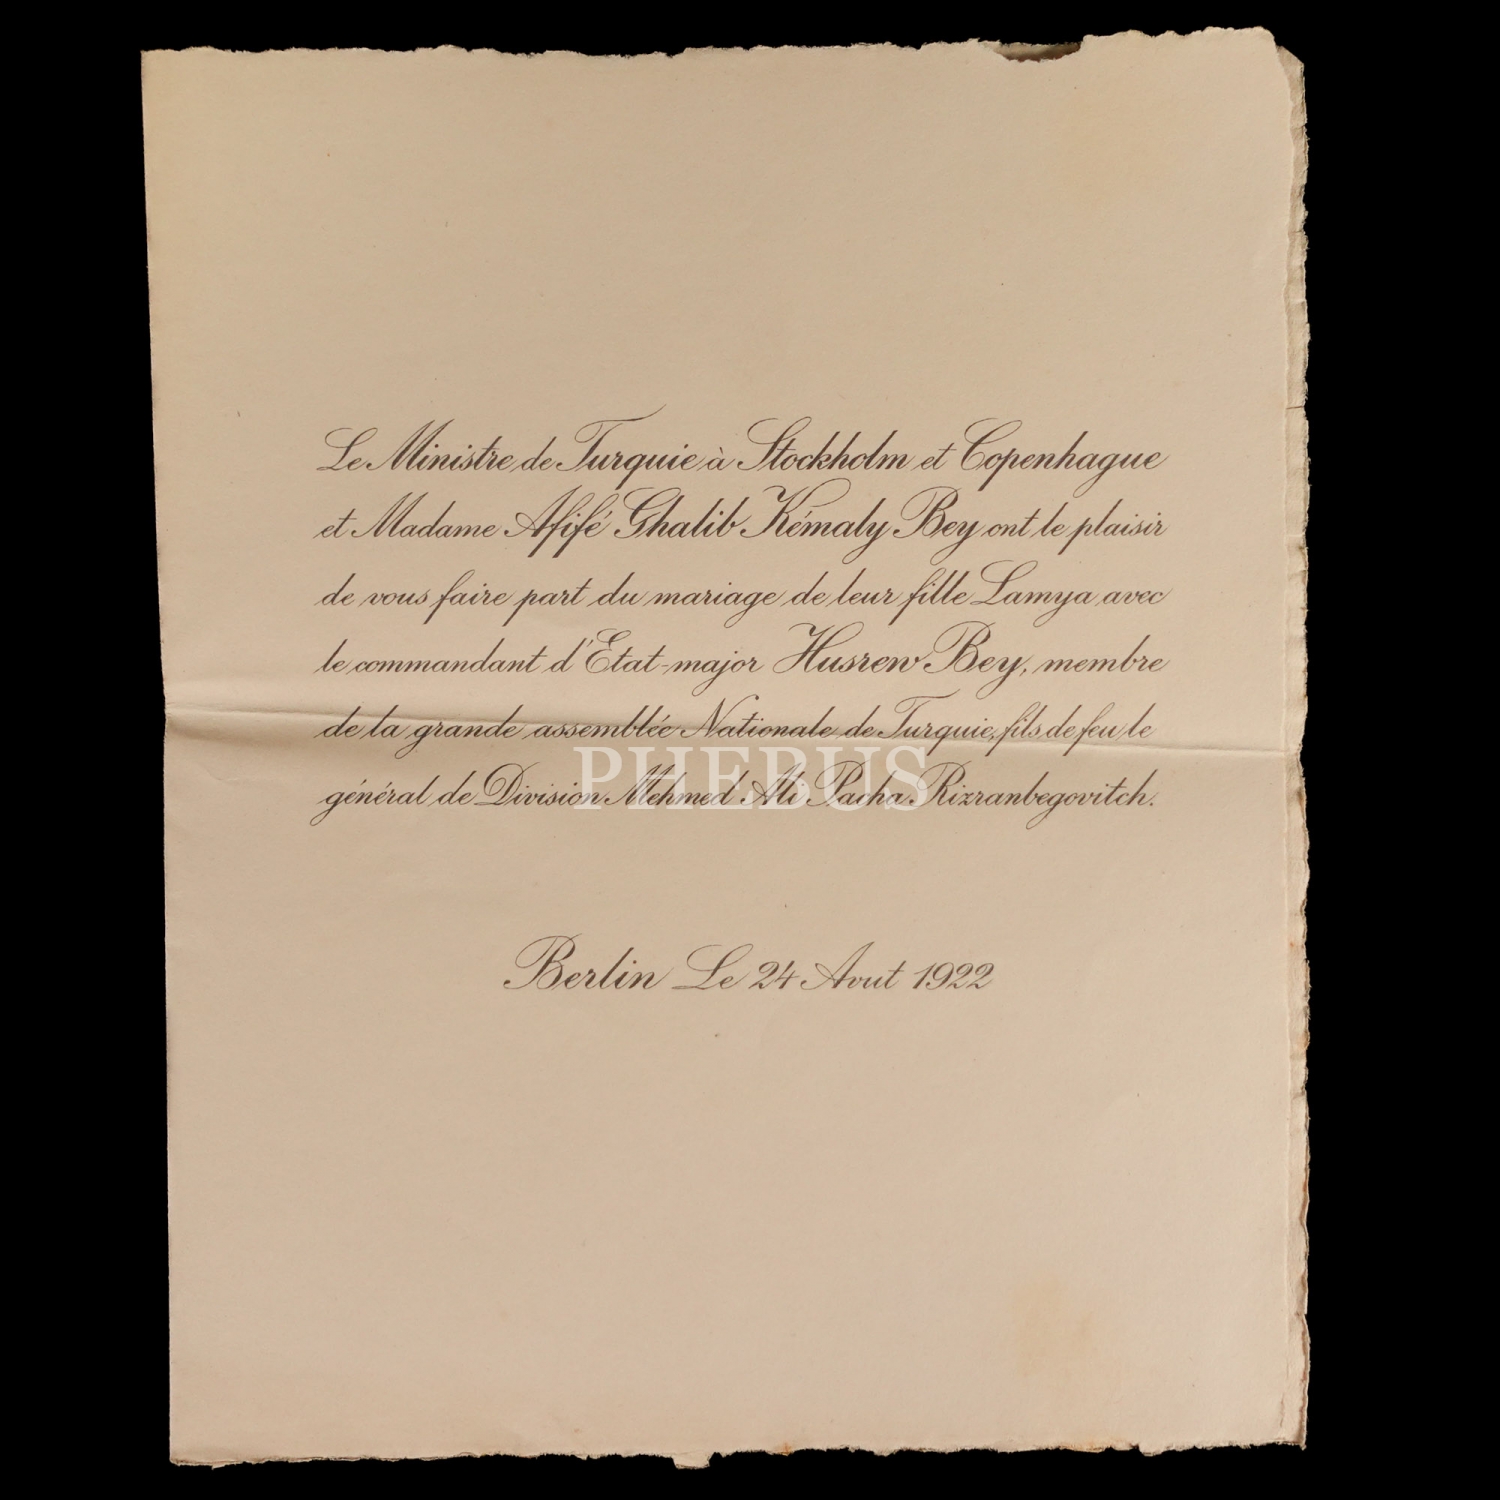 Le Ministre de Turquie à Stockholm et Copenhague
et Madame Afifé Ghalib Kémaly Bey ont le plaisir
de vous faire part du mariage de leur fille Lamya avec
le commandant d'Etat-major Husrew Bey, membre
de la grande assemblée Nationale de Turquie, fils de feu le
général de Division Mehmed Ali Pacha Rizranbegovitch.
PHEBUS
Berlin Le 24 Avut 1922